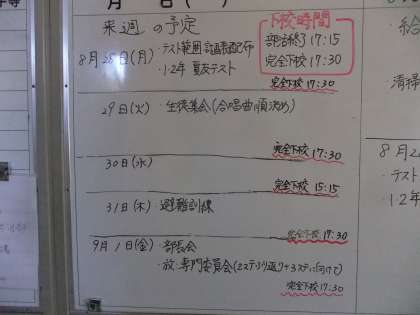 月 日( )
来週の予定
下校時間
部活終了 17:15
完全下校 17:30
8月28日(月)・テスト範囲・計画表配布
・1・2年 夏友テスト
完全下校 17:30
29日(火)・生徒集会(合唱曲順決め)
完全下校 17:30
30日(水)
完全下校 15:15
31日(木)・避難訓練
完全下校 17:30
9月1日(金)・部長会
・放:専門委員会(2ステふり返り→3ステに向けて)
完全下校 17:30
・給
清掃
8月2
・テスト
・1・2年